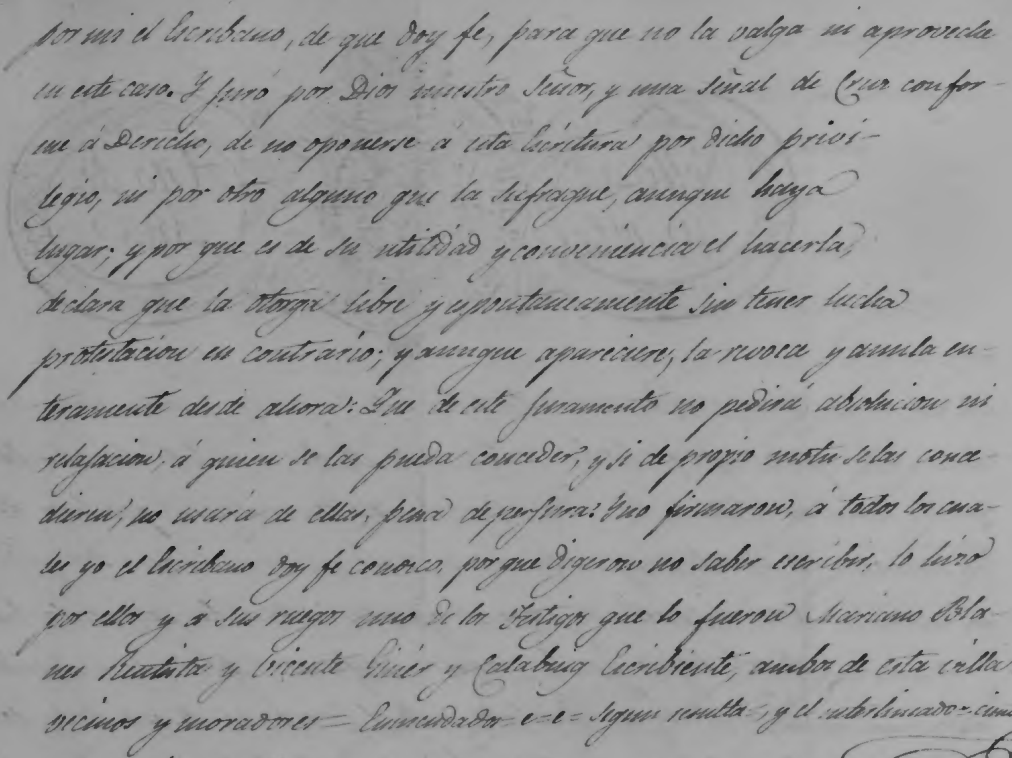 por mi el Escribano, de que doy fe, para que no la valga ni aproveche
en este caso. Y juró por Dios nuestro Señor, y una Señal de Cruz confor-
me á Derecho, de no oponerse á esta Escritura por dicho privi-
legio, ni por otro alguno que la sufrague, aunque haya
lugar; y por que es de su utilidad y conveniencia el hacerla,
declara que la otorga libre y espontaneamente sin tener hecha
protestacion en contrario; y aunque apareciere, la revoca y anula en-
teramente desde ahora: Que de este juramento no pedirá absolucion ni
relajacion, á quien se las pueda conceder, y si de propio motu se las conce-
dieren, no usará de ellas, pena de perjura: Y no firmaron, á todos los cua-
les yo el Escribano doy fe conosco, porque digeron no saber escribir, lo hizo
por ellos y á sus ruegos uno de los Testigos que lo fueron Mariano Bla-
nes y Vicente Giner y Calabuig Escribiente, ambos de esta villa
vecinos y moradores = Enmendados = e = e = segun resulta =, y el interlineado =